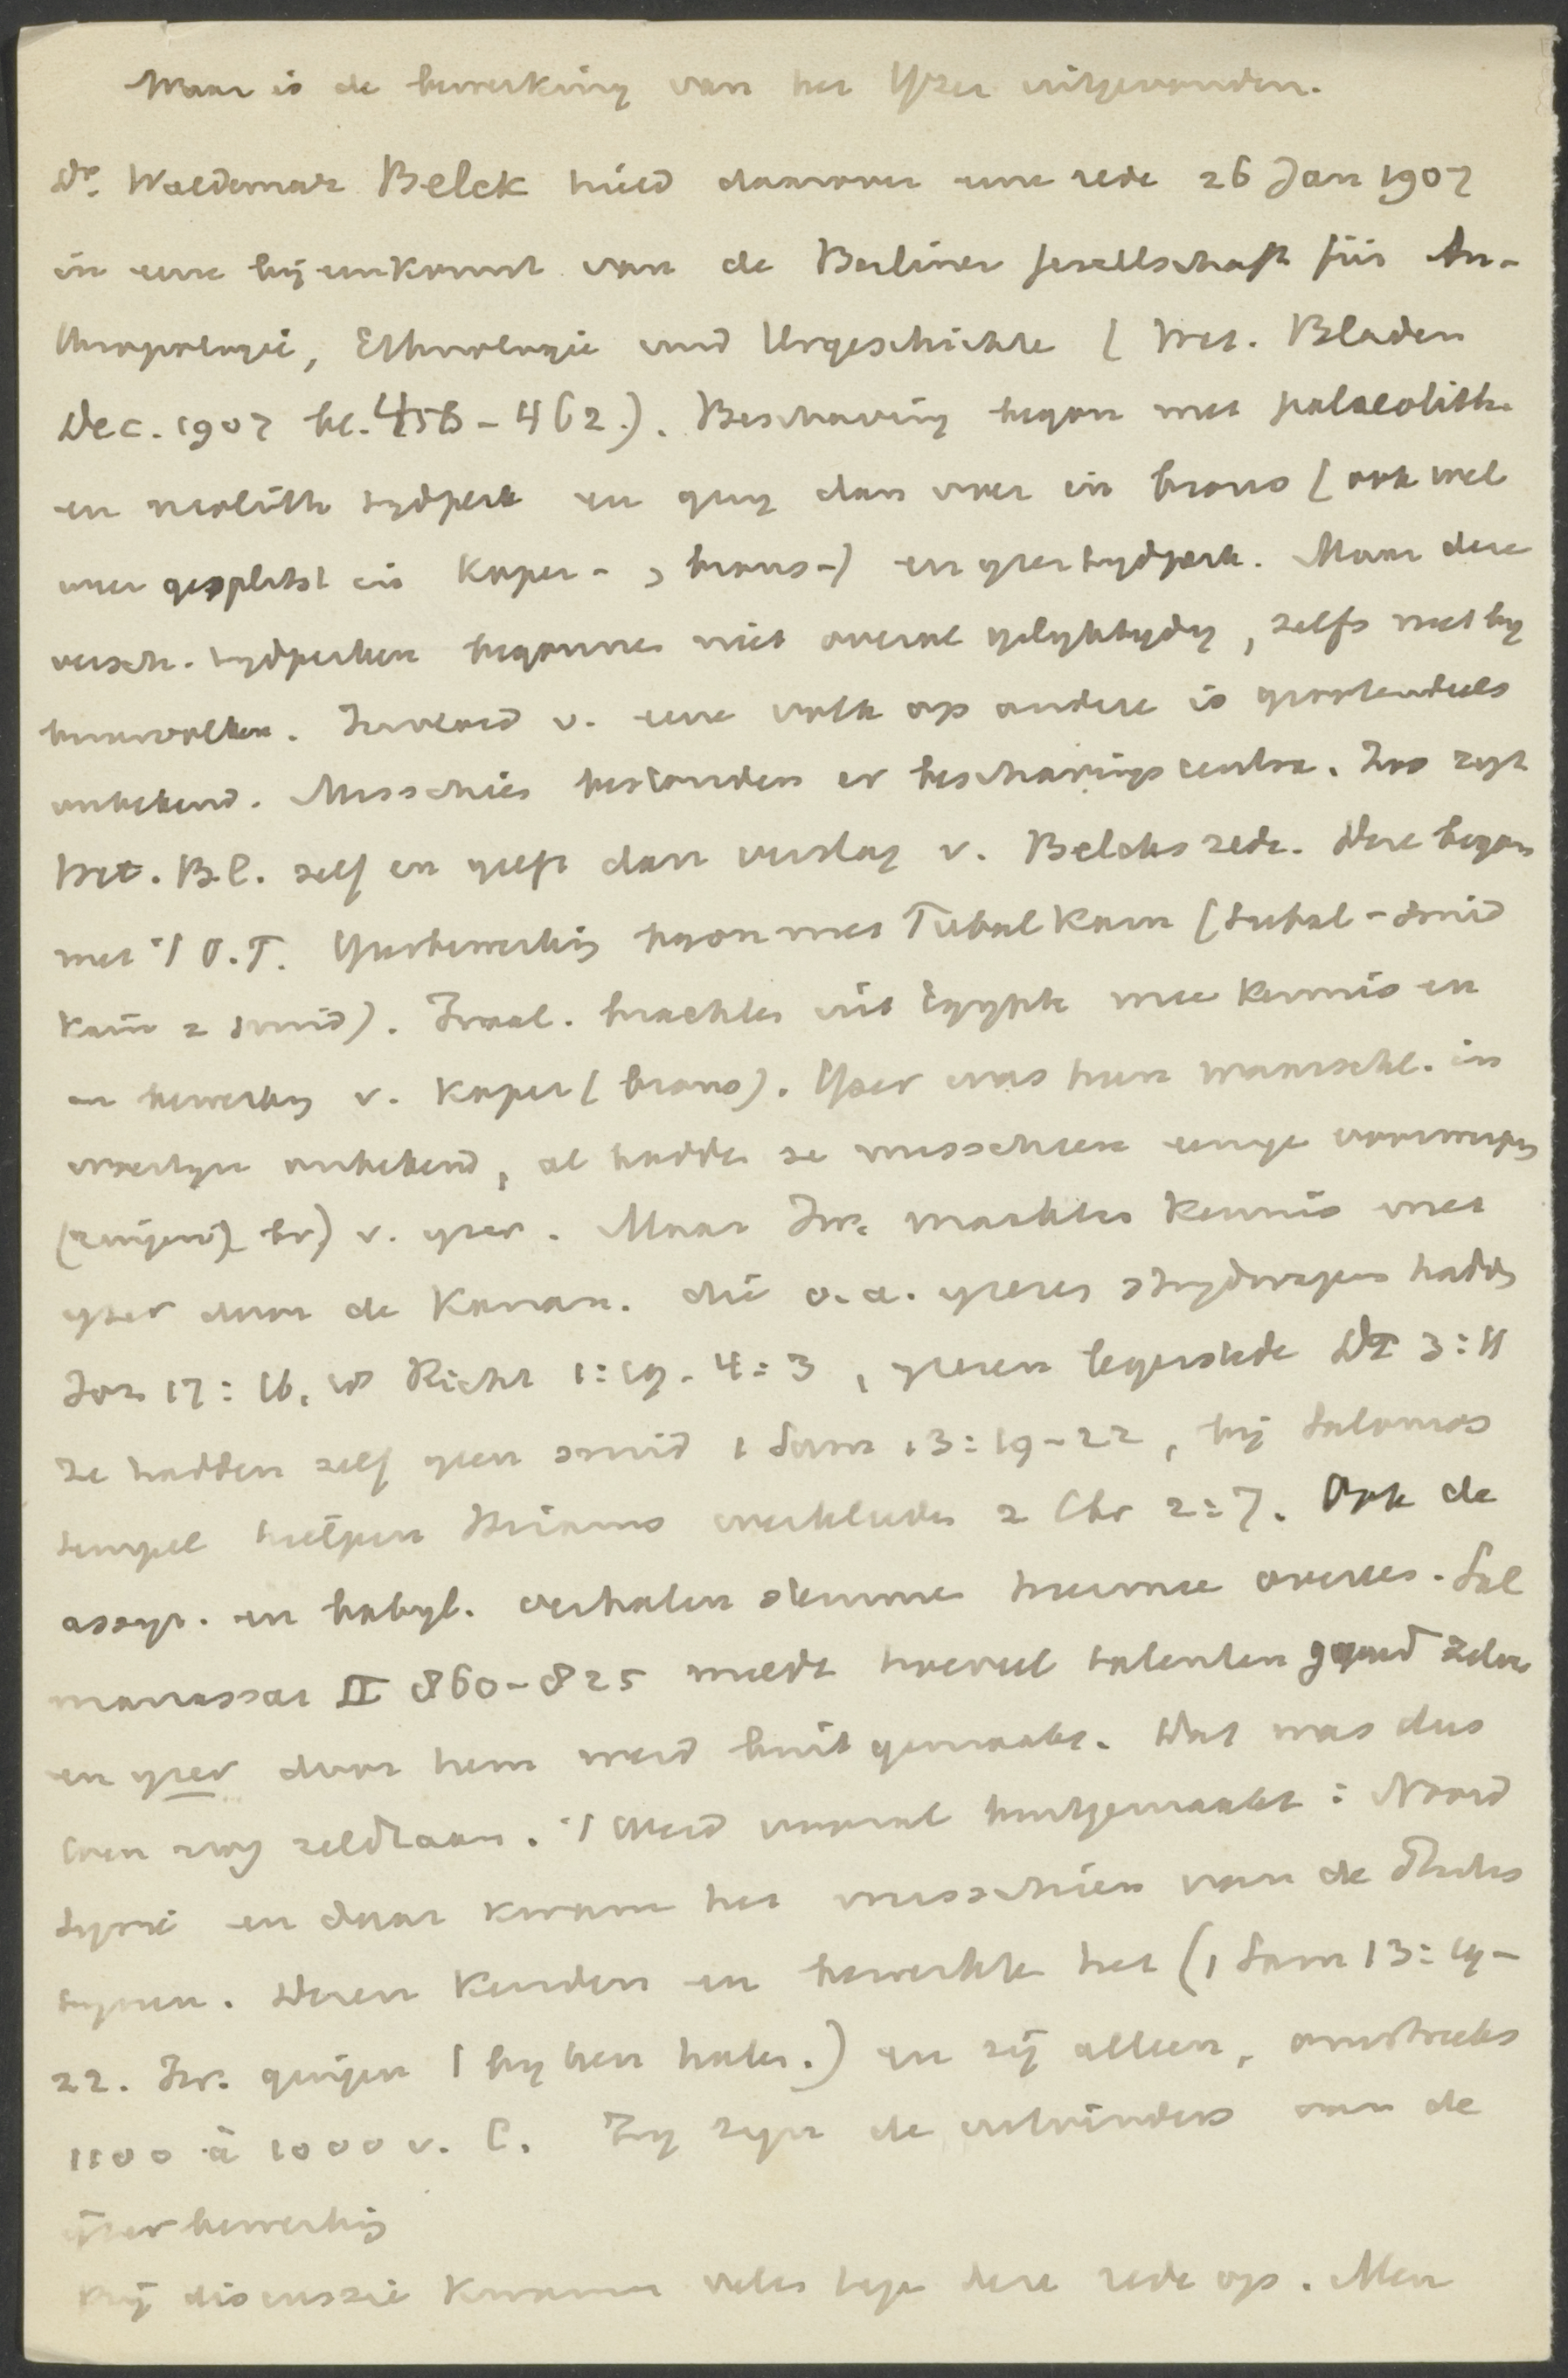 Waar is de bewerking van het IJzer uitgevonden.
Dr. Waldemar Belck hield daarover eene rede 26 Jan 1907
in eene bijeenkomst van de Berliner Gesellschaft für An-
thropologie, Ethnologie und Urgeschichte (Wet. Bladen
Dec. 1907 bl. 456-462.). Beschaving began met palaeolith.
en neolith tydperk en ging dan over in brons (ook wel
weer gesplitst in koper-, brons-) en yzertydperk. Maar deze
versch. tydperken begonnen niet overal gelyktydig, zelfs niet by
buurvolken. Invloed v. eene volk op andere is grootendeels
onbekend. Misschien bestonden er beschavingscentra. Zoo zegt
Wet. Bl. zelf en geeft dan verslag v. Belcks rede. Deze began
met 't O.T. Yzerbewerking began met Tubal Kain (Tubal-smid
Kain = smid). Israel. brachten uit Egypte mee kennis en
en bewerking v. koper (brons). IJzer was hun waarschl. in
woestyn onbekend, al hadden ze misschien eenige voorwerpen
v. yzer. Maar Isr. maakten kennis met
yzer door de Kanaan. die o.a. yzeren strydwagens hadden
Joz 17:16, 18 Richt 1:19. 4:3, yzeren legerstede Dt 3:11
Ze hadden zelf geen smid 1 Sam 13:19-22, bij Salomos
tempel hielpen Hirams werklieden 2 Chr 2:7. Ook de
assyr. en babyl. verhalen stemmen hiermee overeen. Sal
manassar II 860-825 meldt hoeveel talenten goud zilver
en yzer door hem werd buit gemaakt. Dat was dus
toen nog zeldzaam. 't Werd vooral buitgemaakt: Noord
Syrië en daar kwam het misschien van de Filis
tynen. Dezen kenden en bewerkte het (1 Sam 13:19-
22. Isr. gingen by hen halen.) en zij alleen, omstreeks
1100 à 1000 v. C. Zy zyn de uitvinders van de
ijzerbewerking
Bij discussie kwamen velen tegen deze rede op. Men